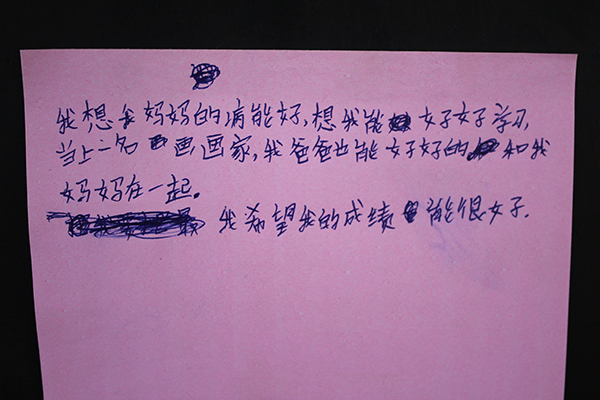 我想我妈妈的病能好,想我能好好学习,
当上一名画画家,我爸爸也能好好的和我
妈妈在一起。
我希望我的成绩能很好.